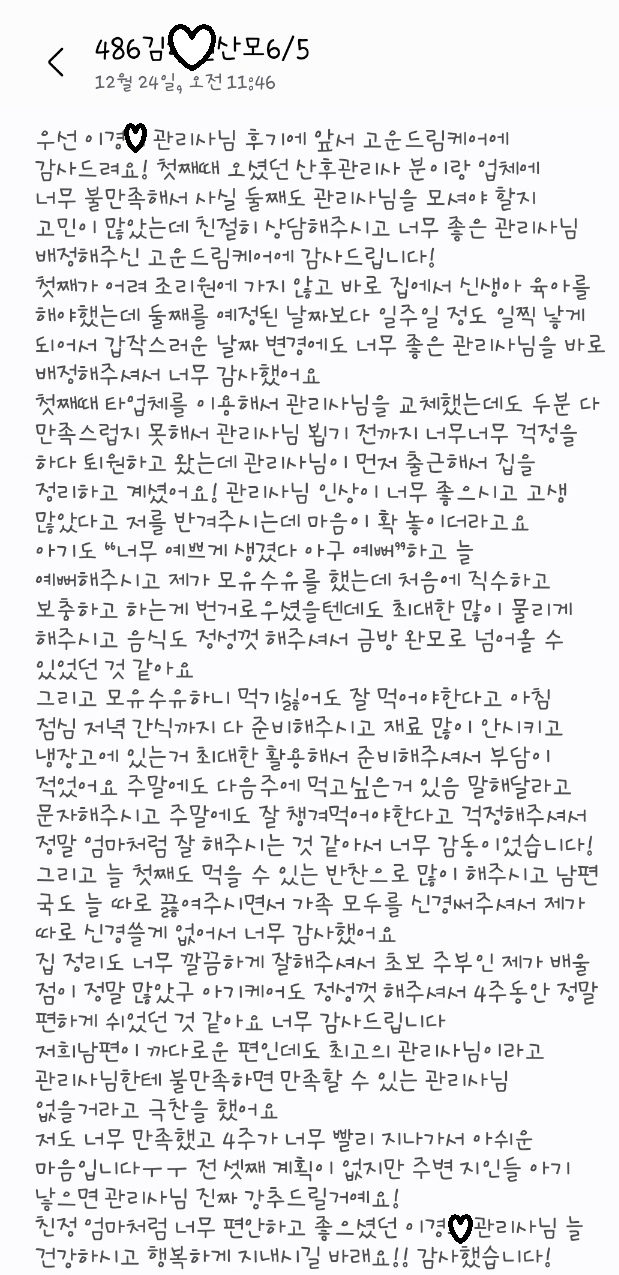 486김♡산모6/5
12월 24일, 오전 11:46
우선 이경♡ 관리사님 후기에 앞서 고운드림케어에
감사드려요! 첫째때 오셨던 산후관리사 분이랑 업체에
너무 불만족해서 사실 둘째도 관리사님을 모셔야 할지
고민이 많았는데 친절히 상담해주시고 너무 좋은 관리사님
배정해주신 고운드림케어에 감사드립니다!
첫째가 어려 조리원에 가지 않고 바로 집에서 신생아 육아를
해야했는데 둘째를 예정된 날짜보다 일주일 정도 일찍 낳게
되어서 갑작스러운 날짜 변경에도 너무 좋은 관리사님을 바로
배정해주셔서 너무 감사했어요
첫째때 타업체를 이용해서 관리사님을 교체했는데도 두분 다
만족스럽지 못해서 관리사님 뵙기 전까지 너무너무 걱정을
하다 퇴원하고 왔는데 관리사님이 먼저 출근해서 집을
정리하고 계셨어요! 관리사님 인상이 너무 좋으시고 고생
많았다고 저를 반겨주시는데 마음이 확 놓이더라고요
아기도 “너무 예쁘게 생겼다 아구 예뻐”하고 늘
예뻐해주시고 제가 모유수유를 했는데 처음에 직수하고
보충하고 하는게 번거로우셨을텐데도 최대한 많이 물리게
해주시고 음식도 정성껏 해주셔서 금방 완모로 넘어올 수
있었던 것 같아요
그리고 모유수유하니 먹기싫어도 잘 먹어야한다고 아침
점심 저녁 간식까지 다 준비해주시고 재료 많이 안시키고
냉장고에 있는거 최대한 활용해서 준비해주셔서 부담이
적었어요 주말에도 다음주에 먹고싶은거 있음 말해달라고
문자해주시고 주말에도 잘 챙겨먹어야한다고 걱정해주셔서
정말 엄마처럼 잘 해주시는 것 같아서 너무 감동이었습니다!
그리고 늘 첫째도 먹을 수 있는 반찬으로 많이 해주시고 남편
국도 늘 따로 끓여주시면서 가족 모두를 신경써주셔서 제가
따로 신경쓸게 없어서 너무 감사했어요
집 정리도 너무 깔끔하게 잘해주셔서 초보 주부인 제가 배울
점이 정말 많았구 아기케어도 정성껏 해주셔서 4주동안 정말
편하게 쉬었던 것 같아요 너무 감사드립니다
저희남편이 까다로운 편인데도 최고의 관리사님이라고
관리사님한테 불만족하면 만족할 수 있는 관리사님
없을거라고 극찬을 했어요
저도 너무 만족했고 4주가 너무 빨리 지나가서 아쉬운
마음입니다ㅜㅜ 전 셋째 계획이 없지만 주변 지인들 아기
낳으면 관리사님 진짜 강추드릴거예요!
친정 엄마처럼 너무 편안하고 좋으셨던 이경♡관리사님 늘
건강하시고 행복하게 지내시길 바래요!! 감사했습니다!